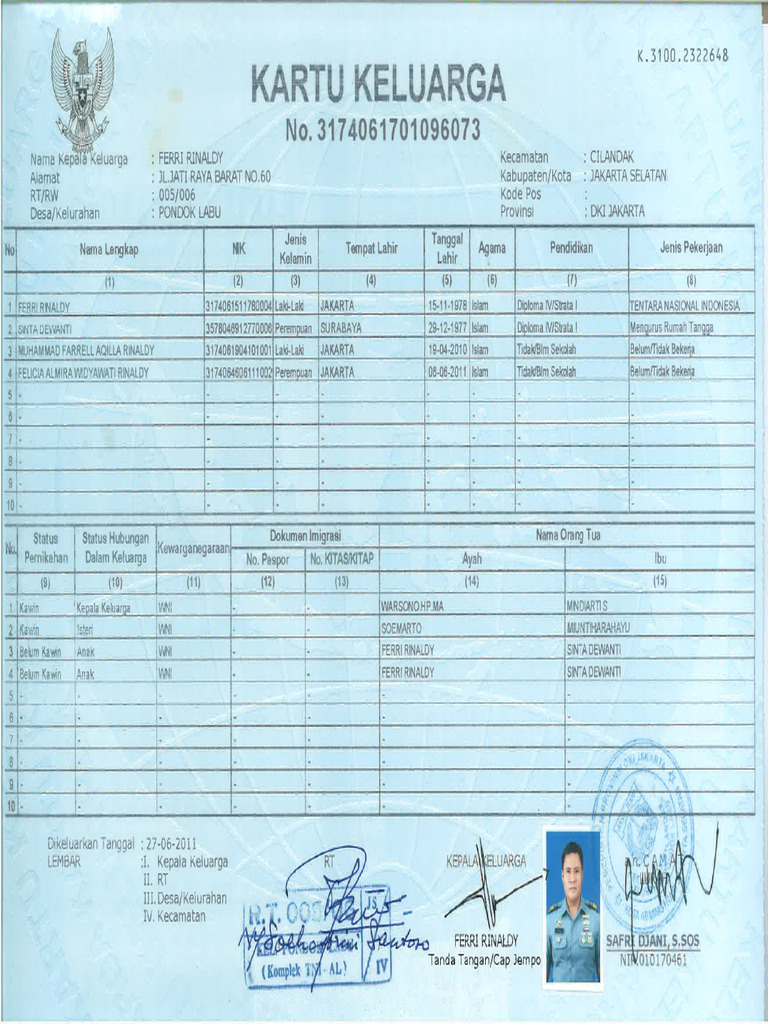 K.3100.2322648
KARTU KELUARGA
No. 3174061701096073
Nama Kepala Keluarga : FERRI RINALDY
Alamat : JL.JATI RAYA BARAT NO.60
RT/RW : 005/006
Desa/Kelurahan : PONDOK LABU
Kecamatan : CILANDAK
Kabupaten/Kota : JAKARTA SELATAN
Kode Pos :
Provinsi : DKI JAKARTA
No Nama Lengkap NIK Jenis Kelamin Tempat Lahir Tanggal Lahir Agama Pendidikan Jenis Pekerjaan
(1) (2) (3) (4) (5) (6) (7) (8)
1 FERRI RINALDY 3174061511780004 Laki-Laki JAKARTA 15-11-1978 Islam Diploma IV/Strata I TENTARA NASIONAL INDONESIA
2 SINTA DEWANTI 3578046912770006 Perempuan SURABAYA 29-12-1977 Islam Diploma IV/Strata I Mengurus Rumah Tangga
3 MUHAMMAD FARRELL AQILLA RINALDY 3174061904101001 Laki-Laki JAKARTA 19-04-2010 Islam Tidak/Blm Sekolah Belum/Tidak Bekerja
4 FELICIA ALMIRA WIDYAWATI RINALDY 3174064606111002 Perempuan JAKARTA 06-06-2011 Islam Tidak/Blm Sekolah Belum/Tidak Bekerja
5 - - - - - - - -
6 - - - - - - - -
7 - - - - - - - -
8 - - - - - - - -
9 - - - - - - - -
10 - - - - - - - -
No. Status Pernikahan Status Hubungan Dalam Keluarga Kewarganegaraan Dokumen Imigrasi Nama Orang Tua
No. Paspor No. KITAS/KITAP Ayah Ibu
(9) (10) (11) (12) (13) (14) (15)
1 Kawin Kepala Keluarga WNI - - WARSONO.HP.MA MINDIARTI S
2 Kawin Isteri WNI - - SOEMARTO MIUNTIHARAHAYU
3 Belum Kawin Anak WNI - - FERRI RINALDY SINTA DEWANTI
4 Belum Kawin Anak WNI - - FERRI RINALDY SINTA DEWANTI
5 - - - - - - -
6 - - - - - - -
7 - - - - - - -
8 - - - - - - -
9 - - - - - - -
10 - - - - - - -
Dikeluarkan Tanggal : 27-06-2011
LEMBAR : I. Kepala Keluarga
II. RT
III. Desa/Kelurahan
IV. Kecamatan
RT
R.T. 005
JS
(Komplek TNI - AL)
IV
KEPALA KELUARGA
FERRI RINALDY
Tanda Tangan/Cap Jempo
CAMAT
SAFRI DJANI, S.SOS
NIP. 010170461